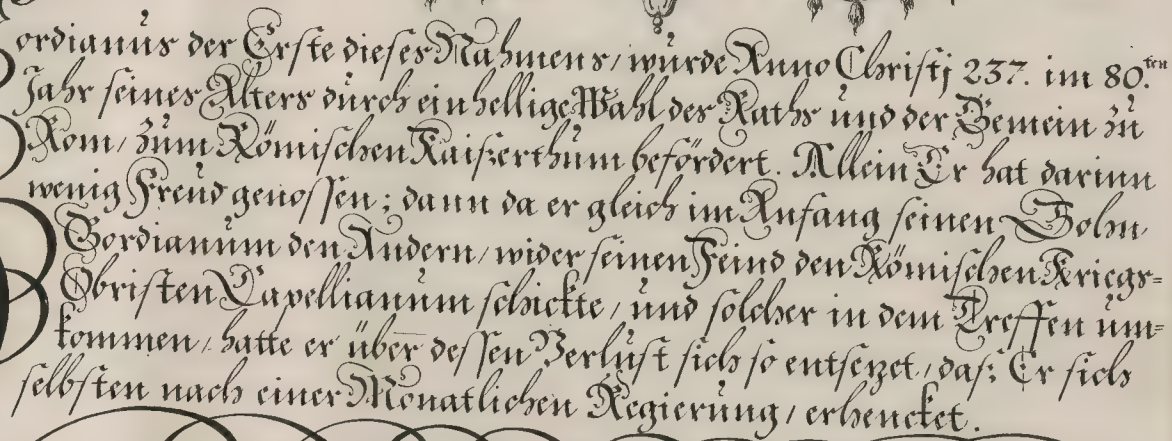 ordianus der Erste dieses Nahmens / wurde Anno Christj 237. im 80.ten
Jahr seines Alters durch ein hellige Wahl des Raths und der Gemein zu
Rom / zum Römischen Kaißerthum befördert. Allein Er hat darinn
wenig Freud genossen; dann da er gleich im Anfang seinen Sohn
Gordianum den Andern / wider seinen Feind den Römischen Kriegs=
Obristen Capellianum schickte / und solcher in dem Treffen um=
kommen / hatte er über dessen Verlust sich so entsezet, daß Er sich
selbsten nach einer Monatlichen Regierung / erhencket.